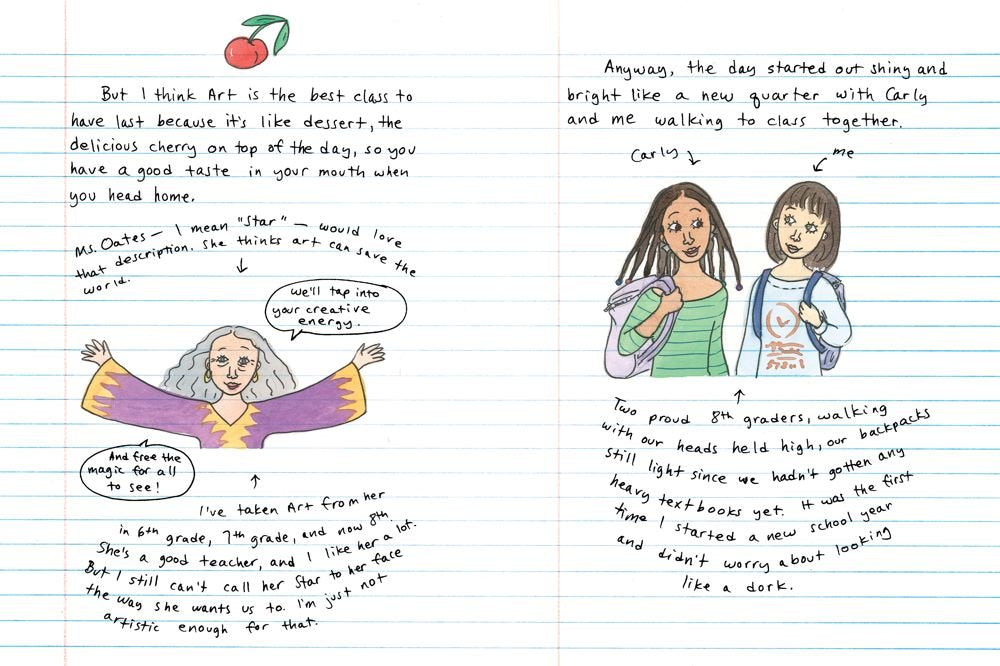 But I think Art is the best class to
have last because it's like dessert, the
delicious cherry on top of the day, so you
have a good taste in your mouth when
you head home.
Ms. Oates — I mean "Star" — would love
that description. She thinks art can save the
world.
We'll tap into
your creative
energy.
And free the
magic for all
to see!
I've taken Art from her
in 6th grade, 7th grade, and now 8th.
She's a good teacher, and I like her a lot.
But I still can't call her Star to her face
the way she wants us to. I'm just not
artistic enough for that.
Anyway, the day started out shiny and
bright like a new quarter with Carly
and me walking to class together.
Carly
me
Two proud 8th graders, walking
with our heads held high, our backpacks
still light since we hadn't gotten any
heavy textbooks yet. It was the first
time I started a new school year
and didn't worry about looking
like a dork.